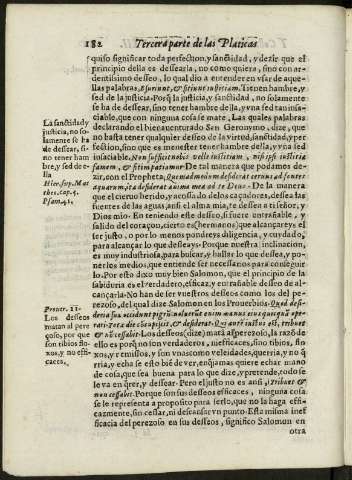 182 Tercera parte de las Platicas
quiso significar toda perfection, y sanctidad, y dezir que el
principio della es dessearla, no como quiera, sino con ar-
dentissimo desseo, lo qual dio a entender en vsar de aque-
llas palabras, Esuriunt, & sitiunt iustitiam. Tienen hambre, y
sed de la justicia. Porq̃ la justicia, y sanctidad, no solamente
se ha de dessear, sino tener hambre della, y sed tan insa-
ciable, que con ninguna cosa se mate. Las quales palabras
declarando el bienauenturado San Geronymo, dize, que
no basta tener qualquier desseo de la virtud, sanctidad, y per-
fection, sino que es menester tener hambre della, y vna sed
insaciable. Non sufficit nobis velle iustitiam, nisi ipsi iustitiæ
famem, & sitim patiamur. De tal manera que podamos de-
zir, con el Propheta; Quemadmodum desiderat ceruus ad fontes
aquarum, ita desiderat anima mea ad te Deus. De la manera
que el cieruo herido, y acosado de los caçadores, dessea las
fuentes de las aguas, assi el alma mia, te dessea a ti señor, y
Dios mio. En teniendo este desseo, si fuere entrañable, y
salido del coraçon, cierto es (hermano) que alcançarys el
ser justo, o por lo menos pondreis diligencia, y cuydado,
para alcançar lo que desseays. Porque nuestra inclinacion,
es muy industriosa, para buscar, y hallar lo que dessea, y po-
nerles medios, que entiende ser necessarios para conseguir
lo. Por esto dixo muy bien Salomon, que el principio de la
sabiduria es el verdadero, efficaz, y entrañable deseo de al-
cançarla. No han de ser vuestros desseos como los del pe-
rezoso, del qual dize Salomon en los Prouerbios. Quod desi-
deria sua occidunt pigrũ: noluerũt enim manus eius quicquã ope-
rari: Tota die concupiscit, & desiderat. Qui autẽ iustus est, tribuet
& nõ cessabit. Los desseos (dize) matã al perezoso, la razõ de
ello es porq̃ no son verdaderos, ni efficaces, sino tibios, fin-
xos, y remissos, y son vnas como veleidades, querria, y no q̃
rria, y echa se esto biẽ de ver, en jamas quiere echar mano
de cosa, que sea buena para lo que dize, y pretende, todo se
le va en q̃rer, y dessear. Pero el justo no es ansi, Tribuet &
non cessabit. Porque son sus desseos efficaces, y ninguna cosa
se le representa a proposito para serlo, que no la haga effi-
cazmente, sin cesar, ni descansar vn punto. Esta misma inef
ficacia del perezoso en sus desseos, significo Salomon en
otra
La sanctidad y
justicia, no so-
lamente se ha
de dessear, si-
no tener ham
bre, y sed de-
lla
Hier. sup. Mat
thæ. cap. 5.
Psam. 41.
Prouer. 21.
Los desseos
matan al pere
çoso, por que
son tibios flo-
xos, y no effi-
caces.